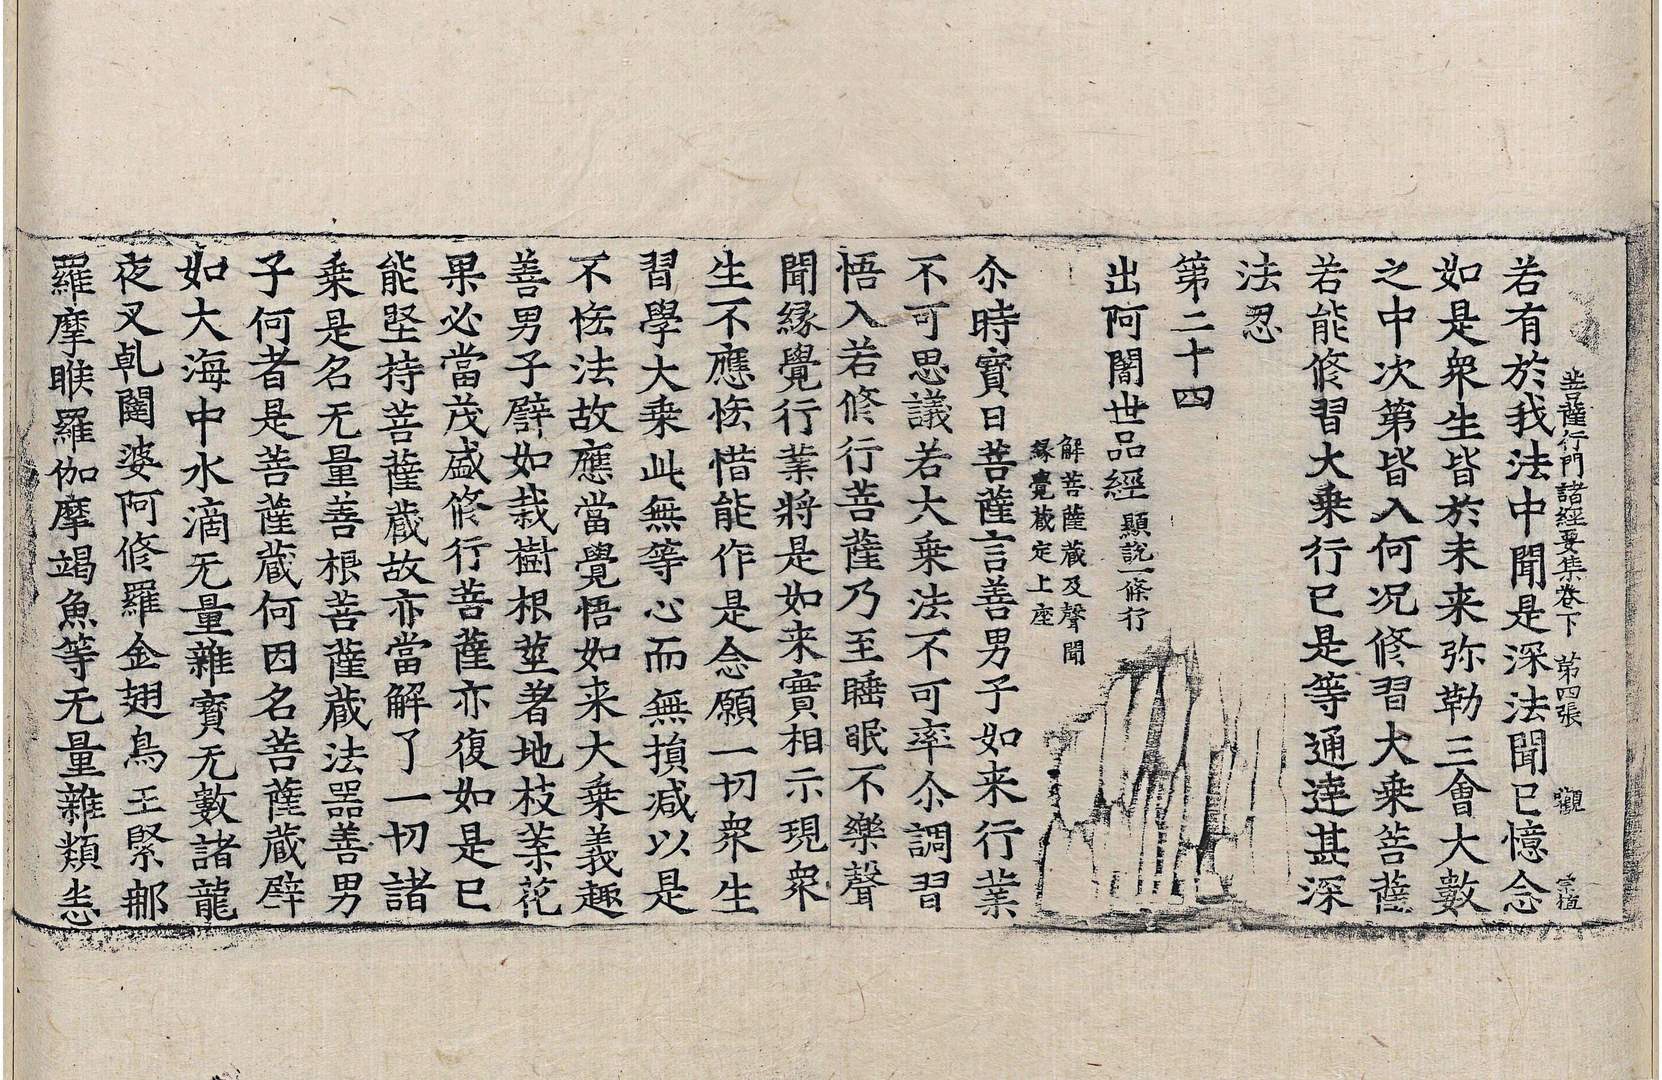 菩薩行門諸經要集卷下 第四張 觀 宗植
若有於我法中聞是深法聞已憶念
如是衆生皆於未来弥勒三會大數
之中次第皆入何况修習大乗菩薩
若能修習大乗行已是等通達甚深
法忍
第二十四
出阿闍世品經 顯說一條行
解菩薩蔵及聲聞
緣覺蔵定上座
尒時寳日菩薩言善男子如来行業
不可思議若大乗法不可率尒調習
悟入若修行菩薩乃至睡眠不樂聲
聞縁覺行業將是如来實相示現衆
生不應恡惜能作是念願一切衆生
習學大乗此無等心而無損减以是
不恡法故應當覺悟如来大乗義趣
善男子譬如栽樹根莖著地枝葉花
果必當茂盛修行菩薩亦復如是已
能堅持菩薩蔵故亦當解了一切諸
乗是名无量善根菩薩蔵法器善男
子何者是菩薩蔵何因名菩薩蔵譬
如大海中水滴无量雜寳无數諸龍
夜叉乹闥婆阿修羅金翅鳥王緊郍
羅摩睺羅伽摩竭魚等无量雜類恙